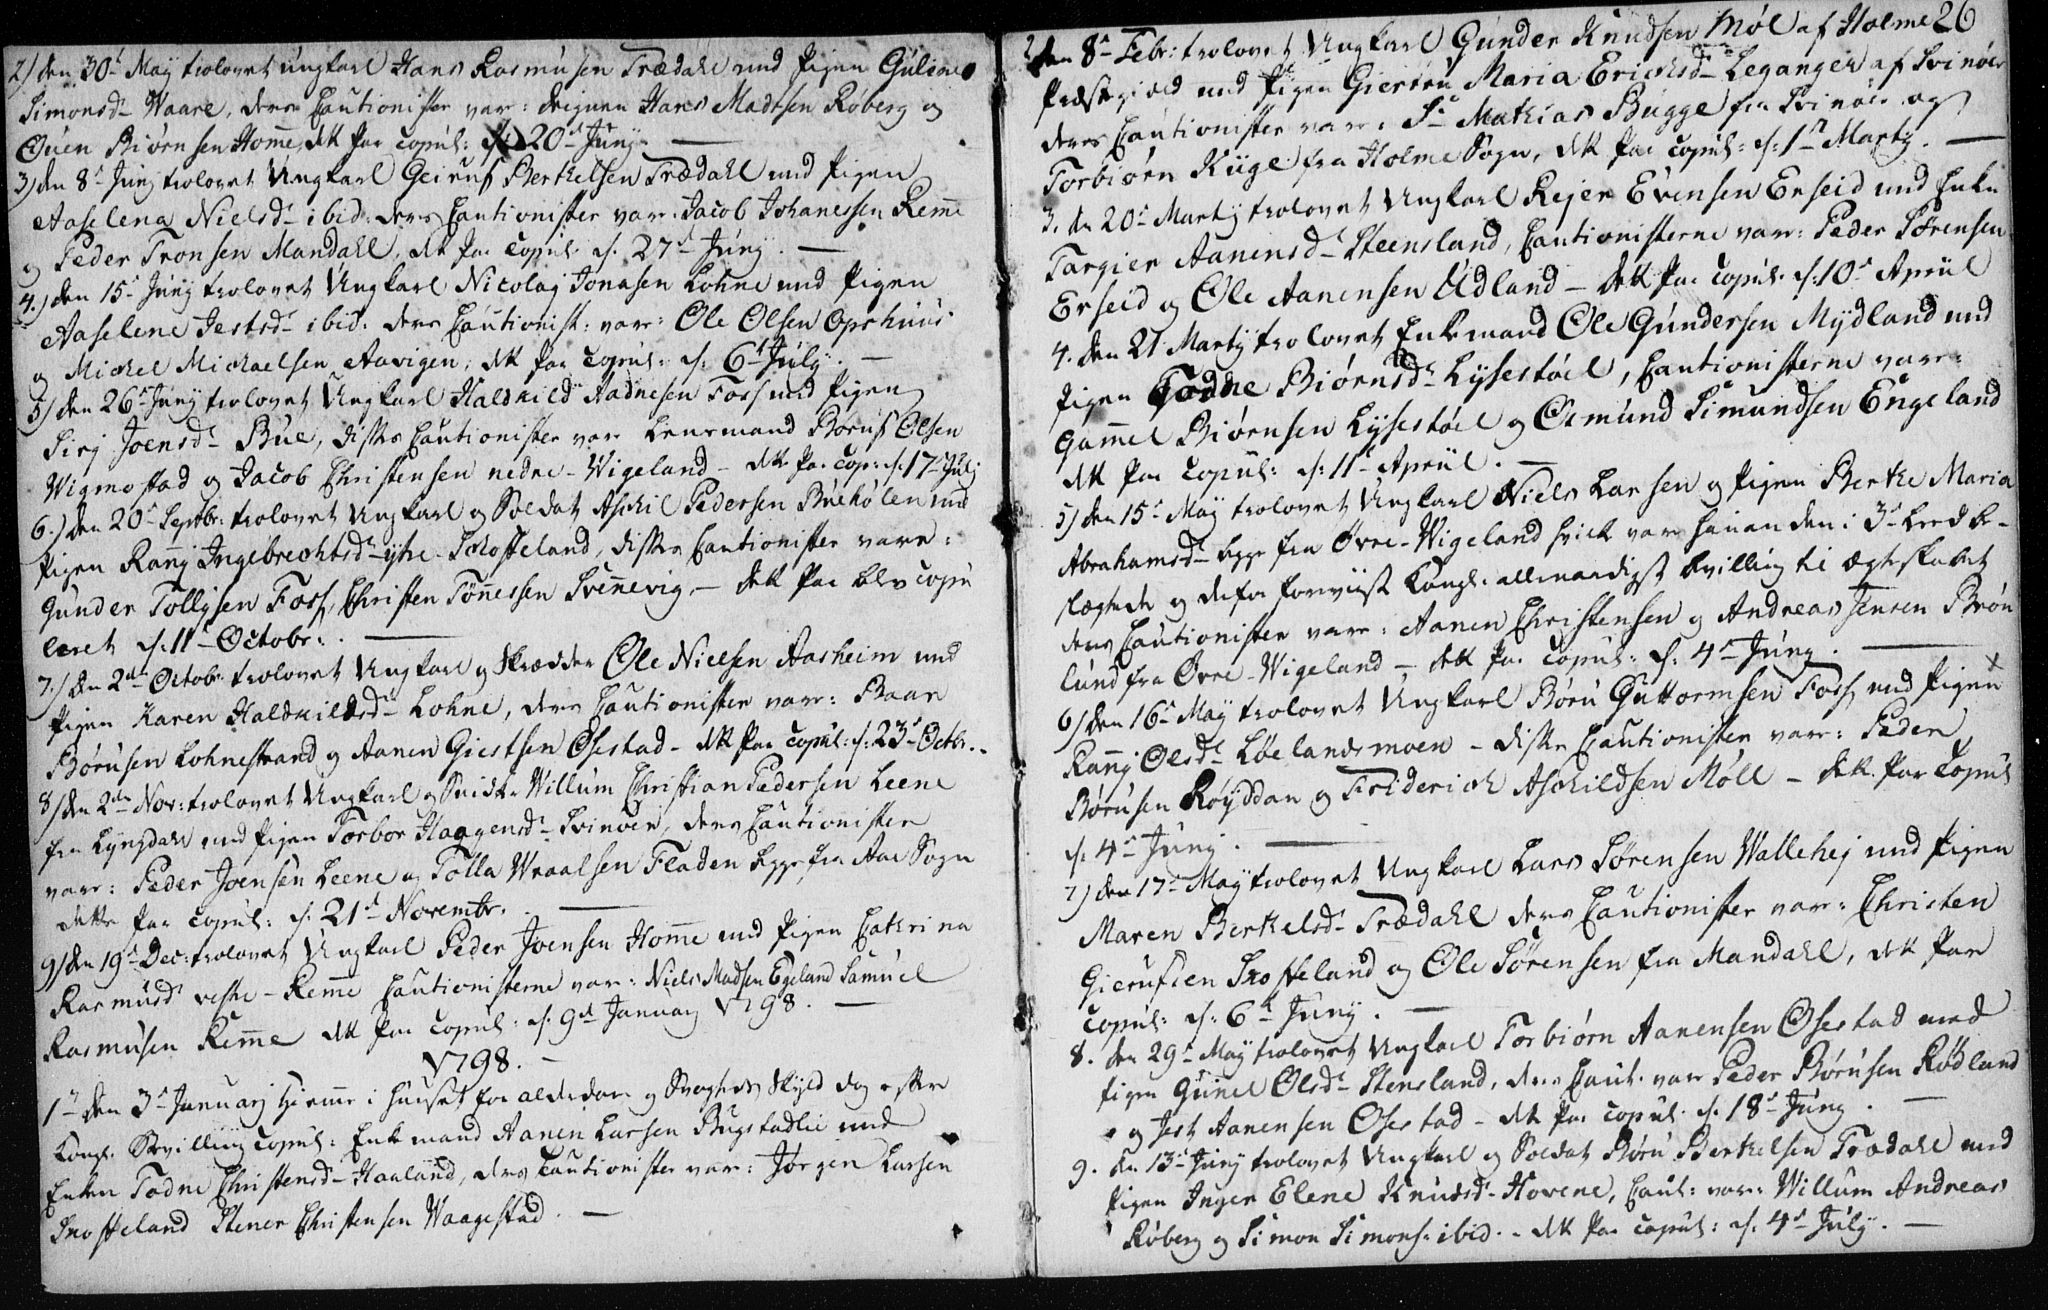 2) den 30t May trolovet ungkarl Hans Rasmusen Trædahl med Pigen Guline
Simonsd- Waare, deres Cautionister var: Hans Madtsen Røberg og
Ouen Biørnsen Home, dette Par copul: d: 20d Juny. —
3) den 8t Juny trolovet Ungkarl Geiruf Berthelsen Trædahl med Pigen
Aaselena Nielsd- ibid: deres Cautionister var: Jacob Johanessen Reme
og Peder Tronsen Mandahl, dette Par copul d: 27d Juny. —
4.) den 15t Juny trolovet Ungkarl Nicolaj Jonasen Lohne med Pigen
Aaselene Jestsd- ibid: deres Cautionist: var: Ole Olsen Opshuus
og Michel Michaelsen Aavigen; dette Par copul: d: 6t July. —
5) den 26t Juny trolovet Ungkarl Haldkild Aadnesen Foss med Pigen
Sirj Joensd- Bue, disses Cautionister var Lensmand Borus Olsen
Wigmostad og Jacob Christensen nedre-Wigeland - dette Par cop: d: 17t July
6.) den 20t Septbr: trolovet Ungkarl og Soldat Askil Pedersen Buehølen med
Pigen Ranj Ingebrechtsd- ytre Skoffeland, disses Cautionister vare:
Gunder Tollysen Foss, Christen Tönnessen Svennevig, — dette Par blev copu
leret d: 11t Octobr: —
7.) den 2den Octobr: trolovet Ungkarl og Skrædder Ole Nielsen Aasheim med
Pigen Karen Haldkildsd- Lohne, deres Cautionister vare: Baar
Börusen Lohnestrand og Aanen Giestsen Osestad - dette Par copul: d: 23t Octbr.
8) den 2den Nov: trolovet Ungkarl og Snidker Willum Christian Pedersen Leene
fra Lyngdahl med Pigen Torbor Haagensd- Svinøer, deres Cautionister
vare: Peder Joensen Leene og Tolla Wraalsen Fladen begge fra Aae Sogn
dette Par copul: d: 21d Novembr. —
9) den 19t Dec: trolovet Ungkarl Peder Joensen Home med Pigen Cathrina
Rasmusd vestre-Reme Cautionisterne var: Niels Madsen Egeland Samuel
Rasmusen Reme dette Par copul: d: 9d January 1798. —
1798. —
1t den 3t Januarj hiemme i huuset for alderdom og Svagheds Skyld dog efter
Kongl: Bevilling copul: Enkemand Aanen Larsen Bugstadlie med
Enken Todne Christensd- Haaland, deres Cautionister var: Jørgen Larsen
Skoffeland Stener Christensen Waagestad. —
26
2 den 8t Febr: trolovet Ungkarl Gunder Knudsen Möl af Holme
Præstegield med Pigen Giertru Maria Erichsd- Leganger af Svinöer
deres Cautionister vare: Sr Mathias Bugge fra Svinöer og
Torbiørn Kuge fra Holme Sogn, dette Par copul: d: 1t Marty. —
3. den 20t Marty trolovet Ungkarl Rejer Evensen Erseid med Enken
Targier Aanensd- Steensland, Cautionisterne var: Peder Sörensen
Erseid og Ole Aanensen Udland — dette Par copul: d: 10t Apriil
4. den 21 Marty trolovet Enkemand Ole Gundersen Mydland med
Pigen Todne Biørnsd- Lysestöel, Cautionisterne vare:
Gamel Biørnsen Lysestöel og Osmund Simundsen Engeland
dette Par copul: d: 11t Apriil. —
5) den 15t May trolovet Ungkarl Niels Larsen og Pigen Berthe Maria
Abrahamsd- begge fra Øvre-Wigeland hvilk var hinanden i 3t Leed be-
slægtede og derfor foreviist Kongl: allernaadigst Bevilling til ægteskabet
deres Cautionister vare: Aanen Christensen og Andreas Jensen Brön
lund fra Øvre-Wigeland — dette Par copul: d: 4t Juny. —
6) den 16t May trolovet Ungkarl Börü Guttormsen Foss med Pigen x
Ranj Olsd- Löelandsmoen - disses Cautionister vare: Peder
Börusen Röyddan og Friderich Askildsen Möll — dette Par Copul
d. 4t Juny. —
7) den 17t May trolovet Ungkarl Lars Sörensen Wallehej med Pigen
Maren Berthelsd- Trædahl deres Cautionister var: Christen
Gierufsen Skoffeland og Ole Sörensen fra Mandahl, dette Par
copul: d: 6t Juny. —
8. den 29t May trolovet Ungkarl Torbiørn Aanensen Osestad med
Pigen Gunel Olsd- Stensland, deres Caut: var Peder Börusen Rödland
og Jest Aanensen Osestad - dette Par copul: d. 18t Juny. —
9. den 13t Juny trolovet Ungkarl og Soldat Börü Berthelsen Trædahl med
Pigen Inger Elene Knudsd- Hovene, Caut: var: Willum Andreas
Röberg og Simon Simons: ibid. - dette Par copul: d: 4d July. —